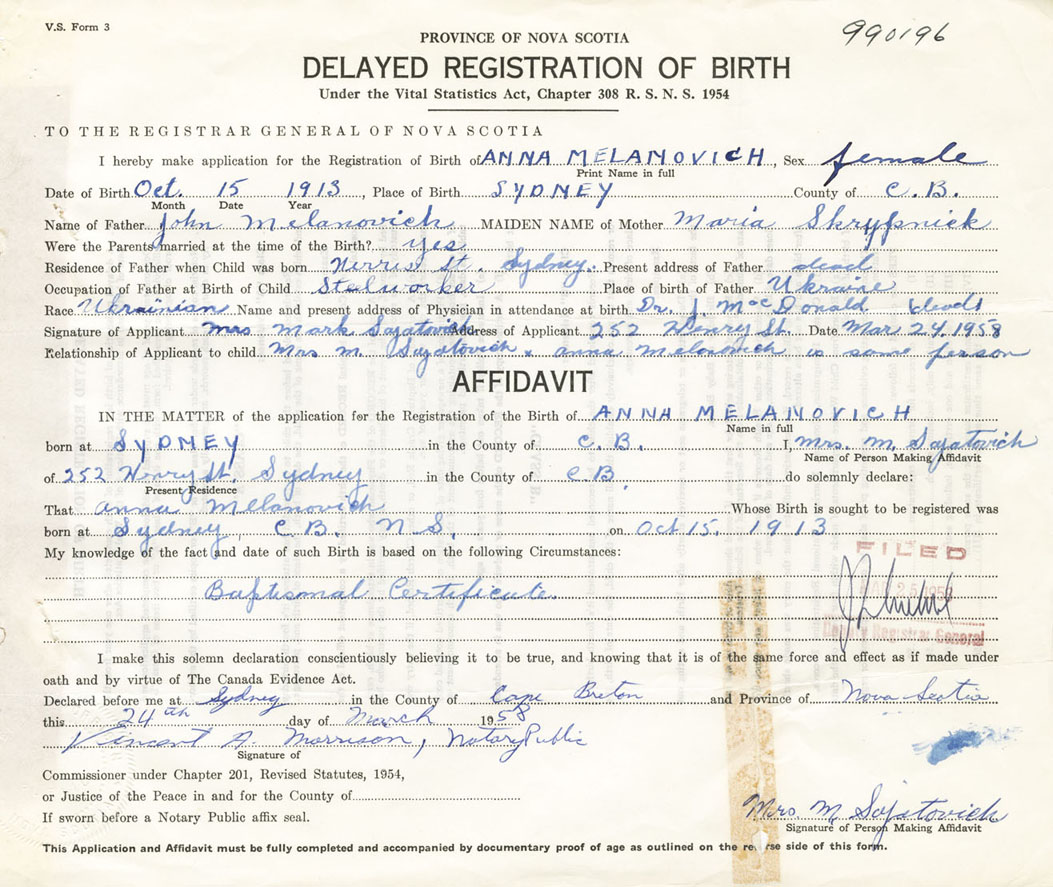 V.S. Form 3
990196
PROVINCE OF NOVA SCOTIA
DELAYED REGISTRATION OF BIRTH
Under the Vital Statistics Act, Chapter 308 R. S. N. S. 1954
TO THE REGISTRAR GENERAL OF NOVA SCOTIA
I hereby make application for the Registration of Birth of ANNA MELANOVICH, Sex female
Print Name in full
Date of Birth Oct. 15 1913, Place of Birth SYDNEY County of C.B.
Month Date Year
Name of Father John Melanovich MAIDEN NAME of Mother Maria Skrypnick
Were the Parents married at the time of the Birth? yes
Residence of Father when Child was born St. Sydney. Present address of Father dead
Occupation of Father at Birth of Child Stelworker Place of birth of Father Ukraine
Race Ukrainian Name and present address of Physician in attendance at birth Dr. J. MacDonald (dead)
Signature of Applicant Mrs Mark Sajatovich Address of Applicant 252 Henry St. Date Mar 24 1958
Relationship of Applicant to child Mrs M. Sajatovich & Anna Melanovich is same person
AFFIDAVIT
IN THE MATTER of the application for the Registration of the Birth of ANNA MELANOVICH
Name in full
born at SYDNEY in the County of C.B. I, Mrs. M. Sajatovich
Name of Person Making Affidavit
of 252 Henry St. Sydney in the County of C.B. do solemnly declare:
Present Residence
That Anna Melanovich Whose Birth is sought to be registered was
born at Sydney, C.B. N.S. on Oct 15, 1913
My knowledge of the fact and date of such Birth is based on the following Circumstances:
FILED
Baptismal Certificate.
Deputy Registrar General
I make this solemn declaration conscientiously believing it to be true, and knowing that it is of the same force and effect as if made under
oath and by virtue of The Canada Evidence Act.
Declared before me at Sydney in the County of Cape Breton and Province of Nova Scotia
this 24th day of March 1958
Vincent A. Morrison, Notary Public
Signature of
Commissioner under Chapter 201, Revised Statutes, 1954,
or Justice of the Peace in and for the County of
If sworn before a Notary Public affix seal.
Mrs. M Sajatovich
Signature of Person Making Affidavit
This Application and Affidavit must be fully completed and accompanied by documentary proof of age as outlined on the reverse side of this form.